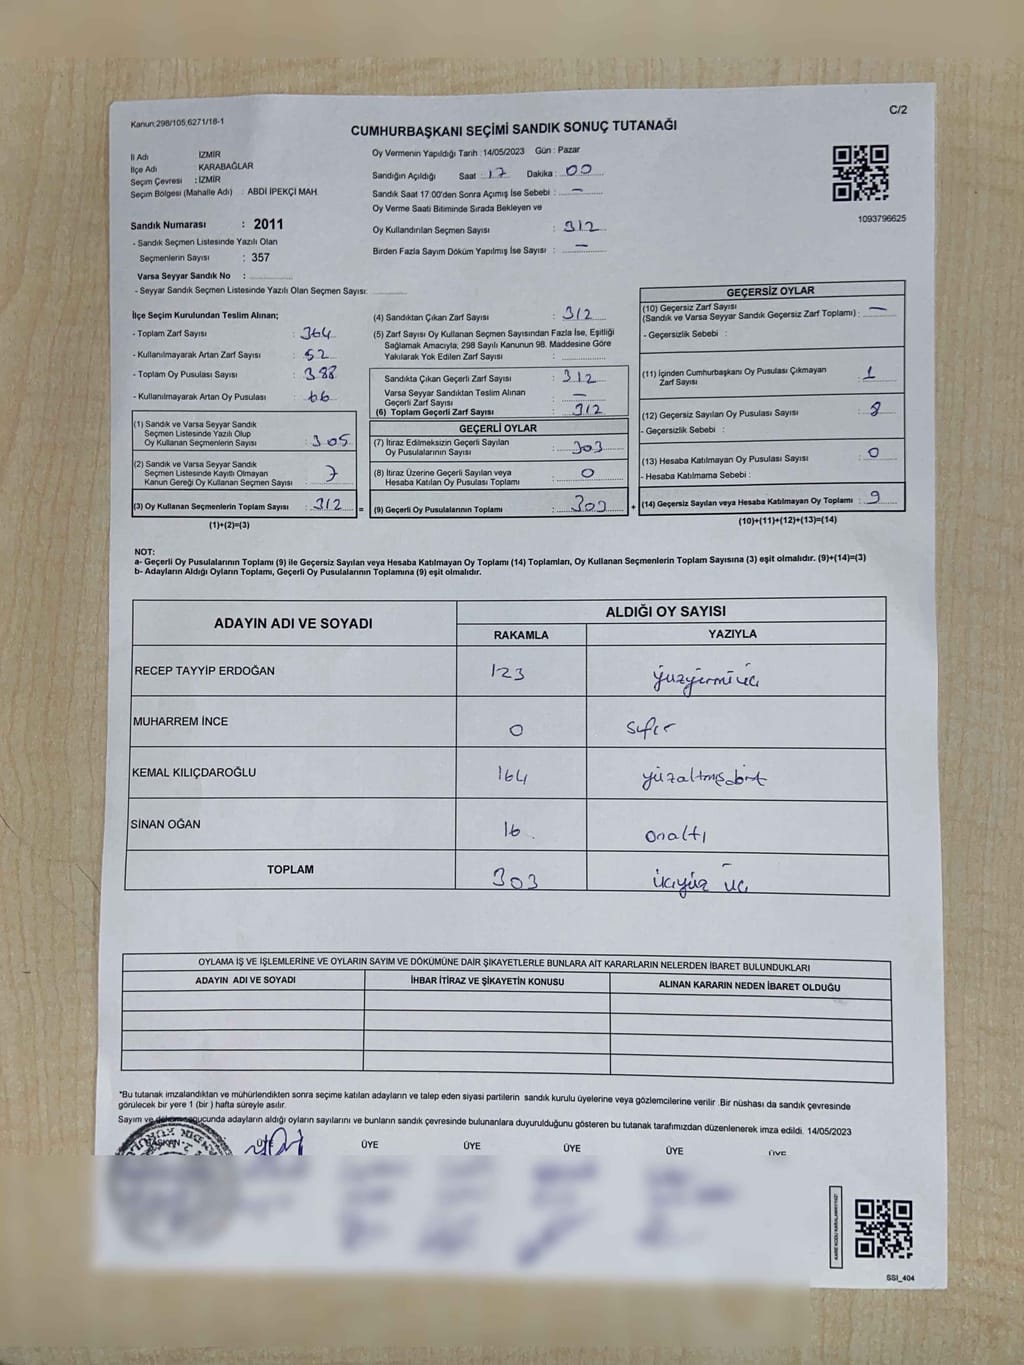 C/2
Kanun:298/105,6271/18-1
CUMHURBAŞKANI SEÇİMİ SANDIK SONUÇ TUTANAĞI
İl Adı : İZMİR
İlçe Adı : KARABAĞLAR
Seçim Çevresi : İZMİR
Seçim Bölgesi (Mahalle Adı) : ABDİ İPEKÇİ MAH.
Sandık Numarası : 2011
- Sandık Seçmen Listesinde Yazılı Olan
Seçmenlerin Sayısı : 357
Varsa Seyyar Sandık No :
- Seyyar Sandık Seçmen Listesinde Yazılı Olan Seçmen Sayısı:
Oy Vermenin Yapıldığı Tarih : 14/05/2023 Gün : Pazar
Sandığın Açıldığı Saat : 17 Dakika : 00
Sandık Saat 17.00'den Sonra Açımış İse Sebebi : -
Oy Verme Saati Bitiminde Sırada Bekleyen ve
Oy Kullandırılan Seçmen Sayısı : 312
Birden Fazla Sayım Döküm Yapılmış İse Sayısı : -
1093796625
İlçe Seçim Kurulundan Teslim Alınan;
- Toplam Zarf Sayısı : 364
- Kullanılmayarak Artan Zarf Sayısı : 52
- Toplam Oy Pusulası Sayısı : 388
- Kullanılmayarak Artan Oy Pusulası : 66
(1) Sandık ve Varsa Seyyar Sandık
Seçmen Listesinde Yazılı Olup
Oy Kullanan Seçmenlerin Sayısı : 305
(2) Sandık ve Varsa Seyyar Sandık
Seçmen Listesinde Kayıtlı Olmayan
Kanun Gereği Oy Kullanan Seçmen Sayısı : 7
(3) Oy Kullanan Seçmenlerin Toplam Sayısı : 312 =
(1)+(2)=(3)
(4) Sandıktan Çıkan Zarf Sayısı : 312
(5) Zarf Sayısı Oy Kullanan Seçmen Sayısından Fazla İse, Eşitliği
Sağlamak Amacıyla; 298 Sayılı Kanunun 98. Maddesine Göre
Yakılarak Yok Edilen Zarf Sayısı :
Sandıkta Çıkan Geçerli Zarf Sayısı : 312
Varsa Seyyar Sandıktan Teslim Alınan
Geçerli Zarf Sayısı : -
(6) Toplam Geçerli Zarf Sayısı : 312
GEÇERLİ OYLAR
(7) İtiraz Edilmeksizin Geçerli Sayılan
Oy Pusulalarının Sayısı : 303
(8) İtiraz Üzerine Geçerli Sayılan veya
Hesaba Katılan Oy Pusulası Toplamı : 0
(9) Geçerli Oy Pusulalarının Toplamı : 303 +
GEÇERSİZ OYLAR
(10) Geçersiz Zarf Sayısı
(Sandık ve Varsa Seyyar Sandık Geçersiz Zarf Toplamı) : -
- Geçersizlik Sebebi :
(11) İçinden Cumhurbaşkanı Oy Pusulası Çıkmayan
Zarf Sayısı : 1
(12) Geçersiz Sayılan Oy Pusulası Sayısı : 8
- Geçersizlik Sebebi :
(13) Hesaba Katılmayan Oy Pusulası Sayısı : 0
- Hesaba Katılmama Sebebi :
(14) Geçersiz Sayılan veya Hesaba Katılmayan Oy Toplamı : 9
(10)+(11)+(12)+(13)=(14)
NOT:
a- Geçerli Oy Pusulalarının Toplamı (9) ile Geçersiz Sayılan veya Hesaba Katılmayan Oy Toplamı (14) Toplamları, Oy Kullanan Seçmenlerin Toplam Sayısına (3) eşit olmalıdır. (9)+(14)=(3)
b- Adayların Aldığı Oyların Toplamı, Geçerli Oy Pusulalarının Toplamına (9) eşit olmalıdır.
ADAYIN ADI VE SOYADI
ALDIĞI OY SAYISI
RAKAMLA YAZIYLA
RECEP TAYYİP ERDOĞAN 123 yüzyirmiüç
MUHARREM İNCE 0 sıfır
KEMAL KILIÇDAROĞLU 164 yüzaltmışdört
SİNAN OĞAN 16 onaltı
TOPLAM 303 üçyüz üç
OYLAMA İŞ VE İŞLEMLERİNE VE OYLARIN SAYIM VE DÖKÜMÜNE DAİR ŞİKAYETLERLE BUNLARA AİT KARARLARIN NELERDEN İBARET BULUNDUKLARI
ADAYIN ADI VE SOYADI İHBAR İTİRAZ VE ŞİKAYETİN KONUSU ALINAN KARARIN NEDEN İBARET OLDUĞU
*Bu tutanak imzalandıktan ve mühürlendikten sonra seçime katılan adayların ve talep eden siyasi partilerin sandık kurulu üyelerine veya gözlemcilerine verilir .Bir nüshası da sandık çevresinde
görülecek bir yere 1 (bir ) hafta süreyle asılır.
Sayım ve sonucunda adayların aldığı oyların sayılarını ve bunların sandık çevresinde bulunanlara duyurulduğunu gösteren bu tutanak tarafımızdan düzenlenerek imza edildi. 14/05/2023
BAŞKAN ÜYE ÜYE ÜYE ÜYE ÜYE ÜYE
SSI_404